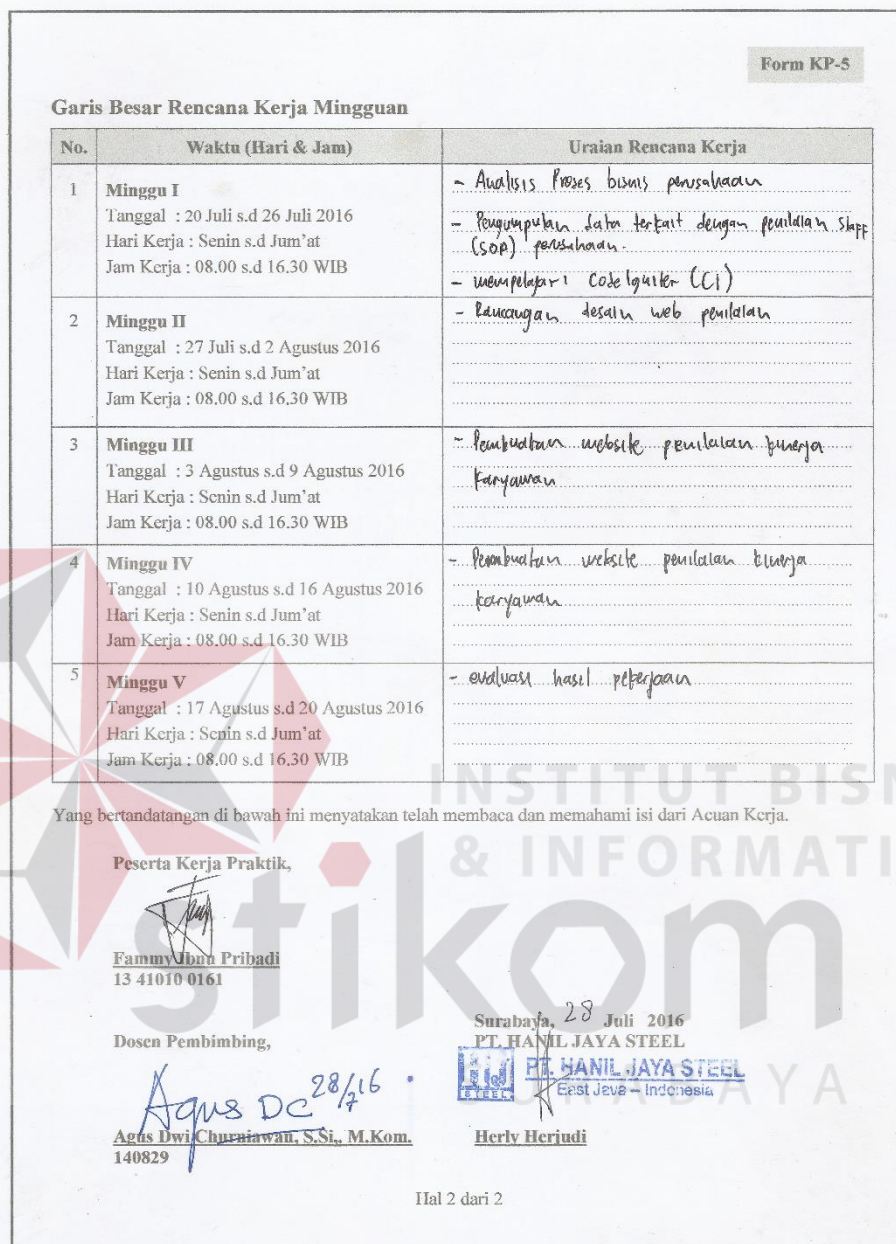 Form KP-5
Garis Besar Rencana Kerja Mingguan
No. Waktu (Hari & Jam) Uraian Rencana Kerja
1 Minggu I
Tanggal : 20 Juli s.d 26 Juli 2016
Hari Kerja : Senin s.d Jum'at
Jam Kerja : 08.00 s.d 16.30 WIB
- Analisis Proses bisnis perusahaan
- Pengumpulan data terkait dengan penilaian staff
(SOP) perusahaan.
- mempelajari CodeIgniter (CI)
2 Minggu II
Tanggal : 27 Juli s.d 2 Agustus 2016
Hari Kerja : Senin s.d Jum'at
Jam Kerja : 08.00 s.d 16.30 WIB
- Rancangan desain web penilaian
3 Minggu III
Tanggal : 3 Agustus s.d 9 Agustus 2016
Hari Kerja : Senin s.d Jum'at
Jam Kerja : 08.00 s.d 16.30 WIB
- Pembuatan website penilaian kinerja
karyawan
4 Minggu IV
Tanggal : 10 Agustus s.d 16 Agustus 2016
Hari Kerja : Senin s.d Jum'at
Jam Kerja : 08.00 s.d 16.30 WIB
- Pembuatan website penilaian kinerja
karyawan
5 Minggu V
Tanggal : 17 Agustus s.d 20 Agustus 2016
Hari Kerja : Senin s.d Jum'at
Jam Kerja : 08.00 s.d 16.30 WIB
- evaluasi hasil pekerjaan
INSTITUT BISN
Yang bertandatangan di bawah ini menyatakan telah membaca dan memahami isi dari Acuan Kerja.
& INFORMATI
Peserta Kerja Praktik,
stikom
Fammy Ibnu Pribadi
13 41010 0161
Surabaya, 28 Juli 2016
Dosen Pembimbing, PT. HANIL JAYA STEEL
HJ STEEL PT. HANIL JAYA STEEL
East Java – Indonesia
SURABAYA
Agus DC 28/7 16
Agus Dwi Churniawan, S.Si., M.Kom. Herly Herjudi
140829
Hal 2 dari 2